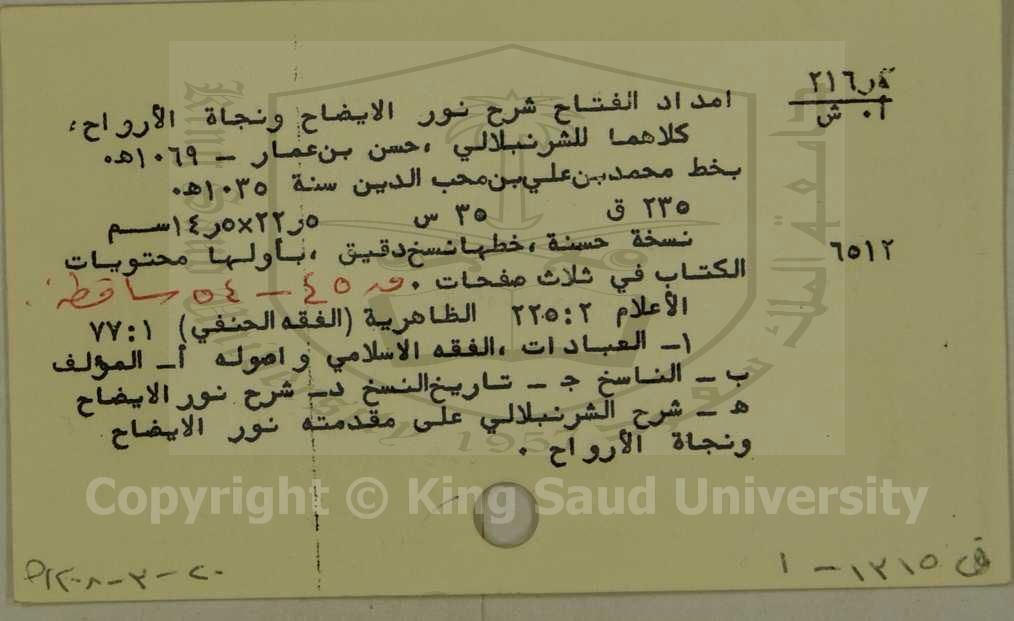 ٢١٦ر٤
أ٠ ش
امداد الفتاح شرح نور الايضاح ونجاة الأرواح،
كلاهما للشرنبلالي ،حسن بن عمار - ١٠٦٩هـ٠
بخط محمدبن علي بن محب الدين سنة ١٠٣٥هـ٠
٢٣٥ ق ٣٥ س ٥ر٢٢×٥ر١٤ســم
٦٥١٢
نسخة حسنة ،خطها نسخ دقيق ،بأولها محتويات
الكتاب في ثلاث صفحات ٠ ٤٥ - ٥٤ ساقطة
الأعلام ٢:٢٢٥ الظاهرية (الفقه الحنفي) ١:٧٧
١- العبادات ،الفقه الاسلامي واصوله أ- المؤلف
ب - الناسخ جـ - تاريخ النسخ د- شرح نور الايضاح
هـ - شرح الشرنبلالي على مقدمته نور الايضاح
ونجاة الأرواح ٠
1957
Copyright © King Saud University
١٣١٥ - ١
٢٠-٣-٢٠٠٨م